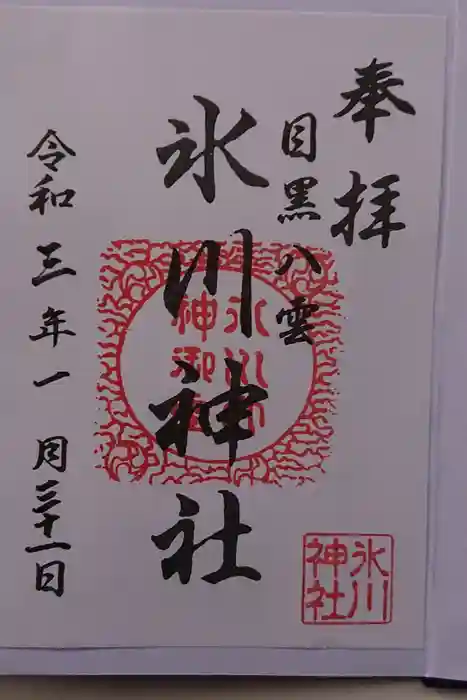 奉拝
目黒八雲
氷川神社
令和三年一月三十一日
氷川神社